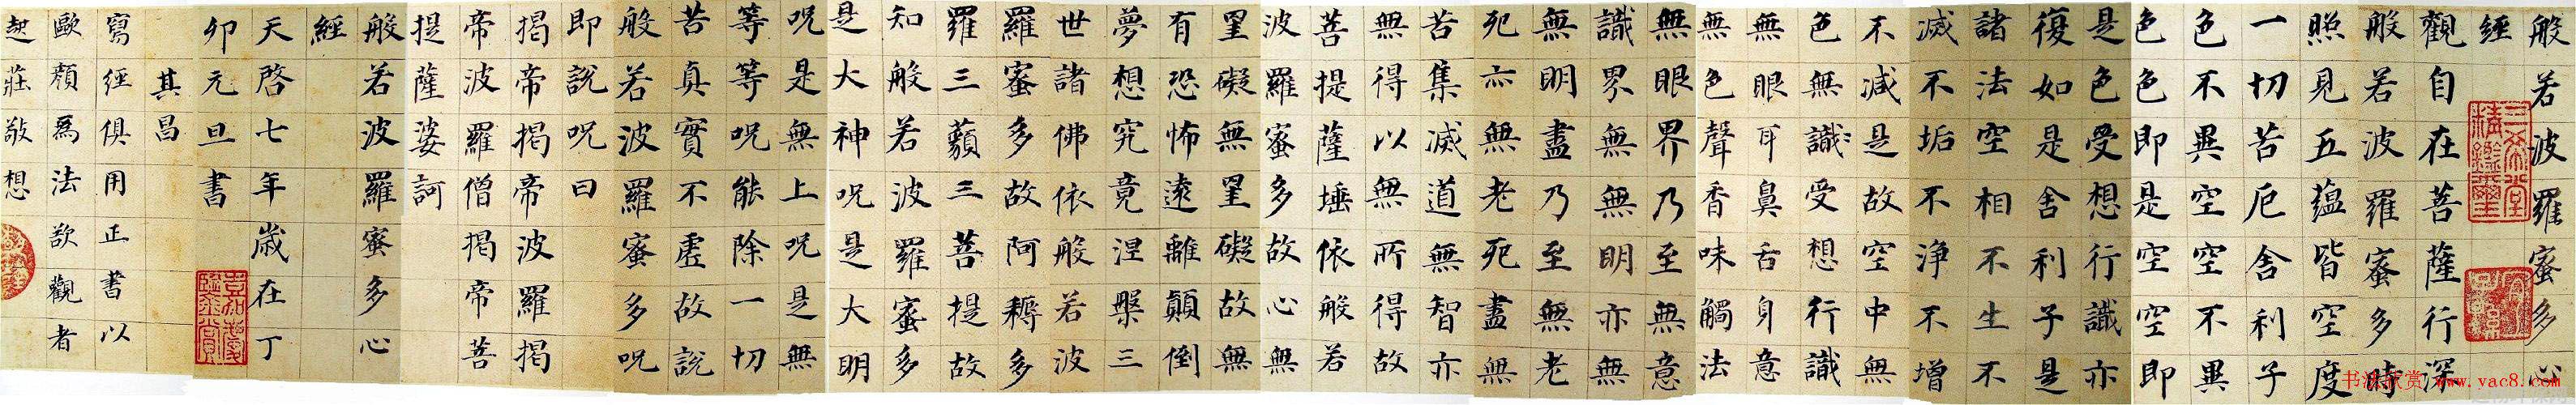 般若波羅蜜多心
經
觀自在菩薩行深
般若波羅蜜多時
照見五蘊皆空度
一切苦厄舍利子
色不異空空不異
色色即是空空即
是色受想行識亦
復如是舍利子是
諸法空相不生不
滅不垢不淨不增
不減是故空中無
色無識受想行識
無眼耳鼻舌身意
無色聲香味觸法
無眼界乃至無意
識界無無明亦無
無明盡乃至無老
死亦無老死盡無
苦集滅道無智亦
無得以無所得故
菩提薩埵依般若
波羅蜜多故心無
罣礙無罣礙故無
有恐怖遠離顛倒
夢想究竟涅槃三
世諸佛依般若波
羅蜜多故阿耨多
羅三藐三菩提故
知般若波羅蜜多
是大神呪是大明
呪是無上呪是無
等等呪能除一切
苦真實不虛故說
般若波羅蜜多呪
即說呪曰
揭帝揭帝波羅揭
帝波羅僧揭帝菩
提薩婆訶
般若波羅蜜多心
經
天啓七年歲在丁
卯元旦書
其昌
寫經俱用正書以
歐顏為法欲觀者
起莊敬想
三希堂精鑑璽
宜子孫
书法欣赏 www.yac8.com